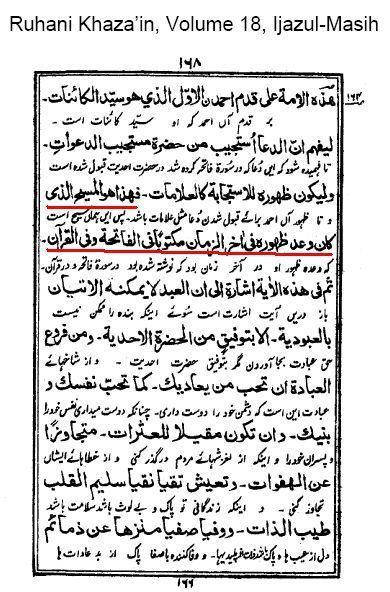 Ruhani Khaza'in, Volume 18, Ijazul-Masih
١٦٨
هذه الامة على قدم احمدن الاوّل الذي هو سيّد الكائنات۔
١٦٤
بر قدم آں احمد کہ او سیّد کائنات است۔
ليفهم انّ الدعا أُستجيب من حضرة مستجيب الدعوات۔
تا فہمیدہ شود کہ ایں دعا کہ در سورۃ فاتحہ کردہ شد در حضرت احدیت قبول شدہ است
وليكون ظهوره للاستجابة كالعلامات۔ فهذا هو المسيح الذى
و تا ظہور آں احمد برائے قبول شدن دعا مثل علامات باشد۔ پس ایں ہماں مسیح است
كان وعد ظهوره فى اٰخر الزمان مكتوبًا فى الفاتحة وفى القراٰن۔
کہ وعدہ ظہور او در آخر زمان بود کہ نوشتہ شدہ بود در سورۃ فاتحہ و در قرآن۔
ثم فى هذه الاٰية اشارة الى ان العبد لا يمكنه الاتيان
باز دریں آیت اشارت است سوئے اینکہ بندہ را ممکن نیست
بالعبودية۔ الا بتوفيق من الحضرة الاحدية۔ ومن فروع
حق عبادت بجا آوردن مگر بتوفیق حضرت احدیت۔ و از شاخہائے
العبادة ان تحب من يعاديك۔ كما تحبّ نفسك و
عبادت این است کہ دشمن خود را دوست داری۔ چنانکہ دوست میداری نفس خود را
بنيك۔ وان تكون مقيلا للعثرات۔ متجاوزًا
و پسران خود را و اینکہ از لغزشہائے مردم درگذر کنی و از خطاہائے ایشاں
عن الهفوات۔ وتعيش تقيا نقيا سليم القلب
تجاوز کنی۔ و اینکہ زندگانی تو پاک و بے لوث باشد سلامت باشد
طيب الذات۔ ووفيا صفيا منزها عن ذمائم
و وفا کنندہ با صفا پاک از بد عادات ہا
١٦٦